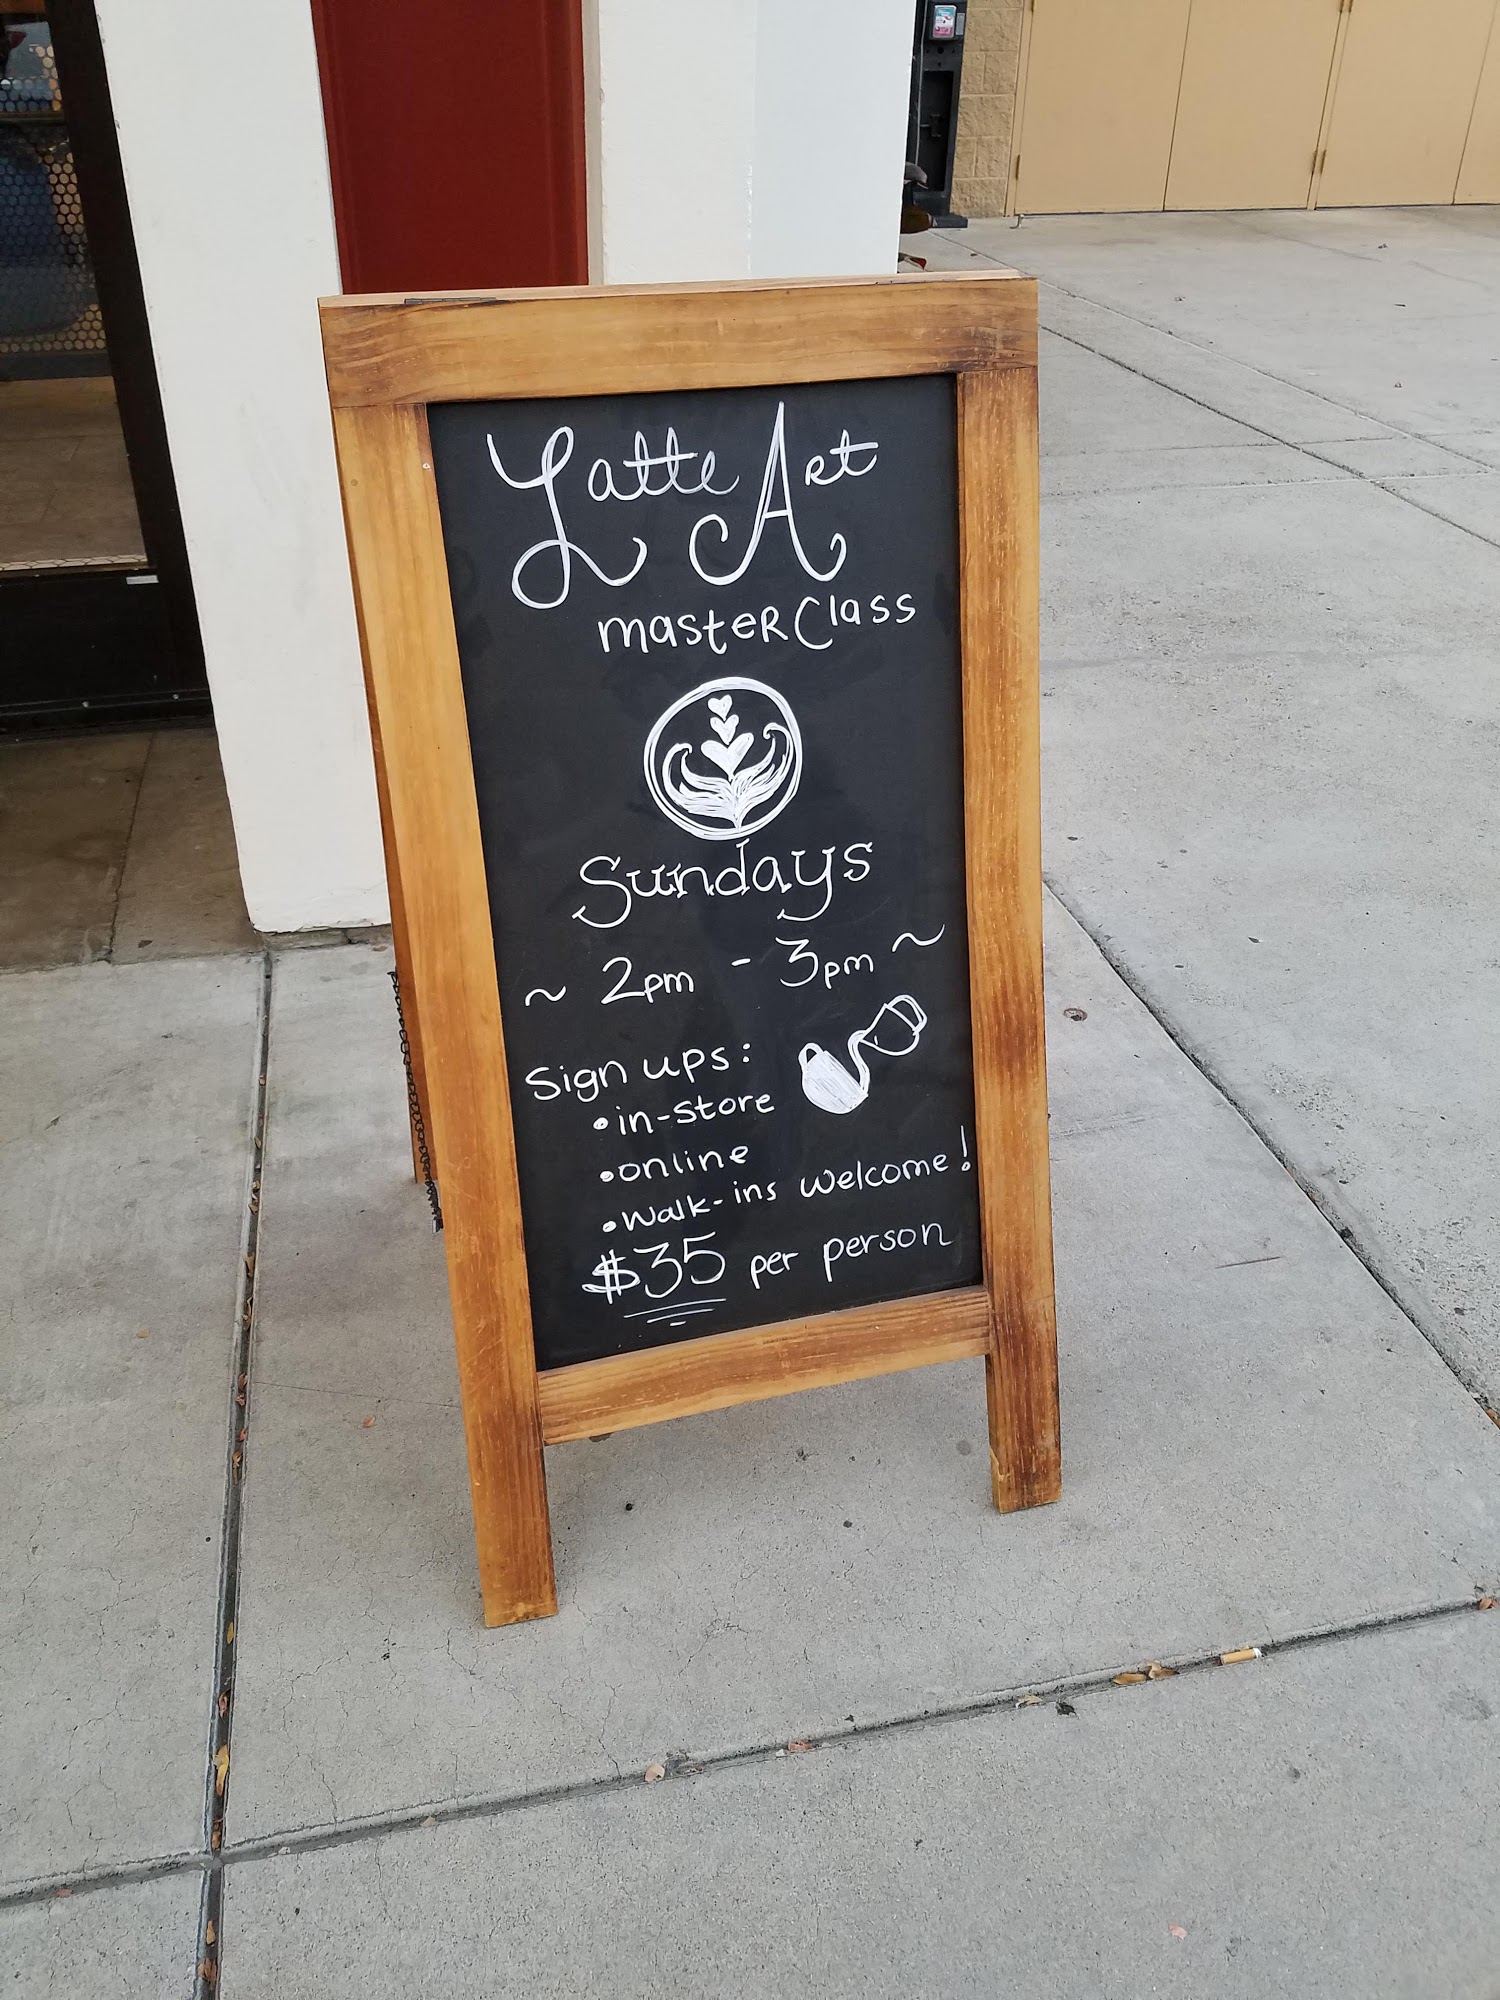 Latte Art
masterclass
Sundays
~ 2pm - 3pm ~
Sign ups:
• in-store
• online
• walk-ins welcome!
$35 per person